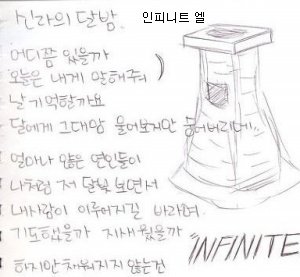 신라의 달밤.
인피니트 엘
어디쯤 있을까
오늘은 내게 말해줘
날 기억할까요
달에게 그대맘 물어보지만 등
얼마나 많은 연인들이
나처럼 저 달빛 보면서
내사랑이 이루어지길 바라며.
기도했을까 지새웠을까
INFINITE
하지만 채워지지 않는건